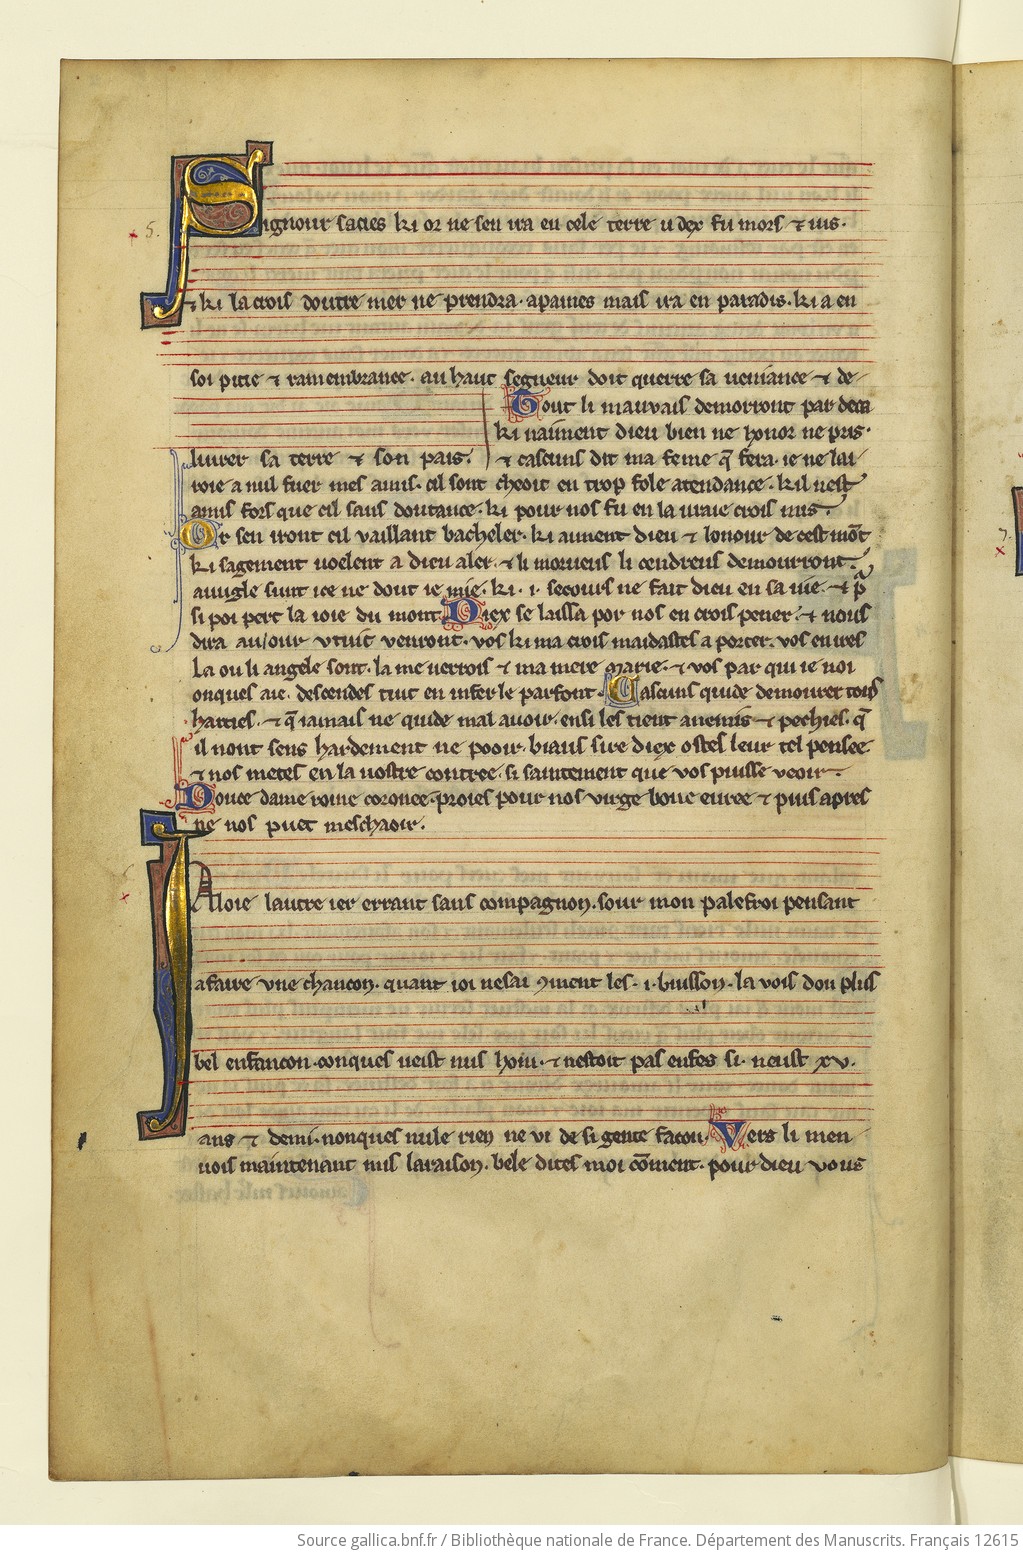 5.
Signour sacies ki or ne sen ira en cele terre u dex fu mors ⁊ uis.
⁊ ki la crois doutre mer ne prendra. apaines mais ira en paradis. ki a en
soi pitie ⁊ ramembrance. au haut segneur doit querre sa ueniance ⁊ de
liurer sa terre ⁊ son pais.
Tout li mauvais demorront par deca
ki naiment dieu bien ne honor ne pris.
⁊ cascuns dit ma feme q̄ fera. ie ne lai
roie a nul fuer mes amis. cil sont cheoit en trop fole atendance. kil nest
amis fors que cil sans doutance. ki pour nos fu en la uraie crois mis.
Or sen iront cil vaillant bacheler. ki aiment dieu ⁊ lonour de cest mōt
ki sagement uoelent a dieu aler. ⁊ li morueus li cendreus demourront.
auugle sunt ice ne dout ie mie. ki .i. secours ne fait dieu en sa uie. ⁊ pͣ
si poi pert la ioie du mont. Diex se laissa por nos en crois pener. ⁊ nous
dira au iour v tuit venront. vos ki ma crois maidastes a porter. vos en ires
La ou li angele sont. la me uerrois ⁊ ma mere marie. ⁊ vos par qui ie noi
onques aie. descendes tuit en infer le parfont. Cascuns quide demourer tous
haities. ⁊ q̄ iamais ne quide mal auoir. ensi les tient anemis ⁊ pechies. q̄
il nont sens hardement ne pooir. biaus sire diex ostes leur tel pensee
⁊ nos metes en la uostre contree. si saintement que vos puisse veoir.
Douce dame roine coronee. proies pour nos virge bone euree ⁊ puis apres
ne nos puet meschaoir.
6
IAloie lautre ier errant sans compagnon. sour mon palefroi pensant
a faire vne chancon. quant ioi ne sai ꝯment les .i. buisson. la vois dou plus
bel enfancon. conques ueist nus hom. ⁊ nestoit pas enfes si neust xv.
ans ⁊ demi. nonques nule rien ne vi de si gente facon. Vers li men
uois maintenant mis la raison. bele dites moi cōment. pour dieu vous
7.
Source gallica.bnf.fr / Bibliothèque nationale de France. Département des Manuscrits. Français 12615